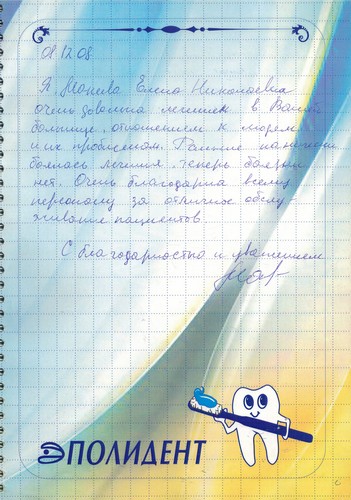 08.12.08
Я, Монева Елена Николаевна
очень довольна лечением в Вашей
больнице, отношением к людям
и их проблемам. Раньше панически
боялась лечения, теперь боязни
нет. Очень благодарна всему
персоналу за отличное обслу-
живание пациентов.
С благодарностью и уважением
ЭПОЛИДЕНТ